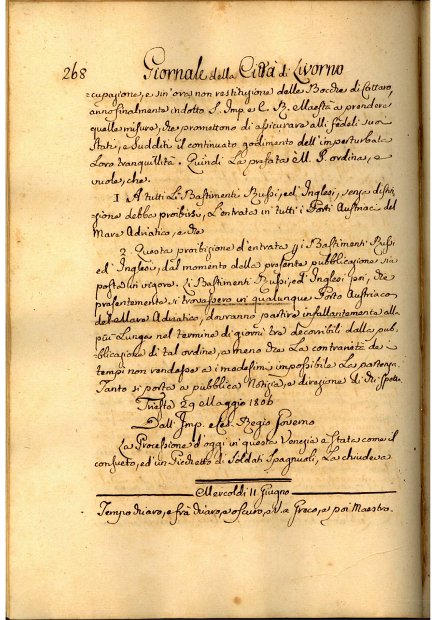 268 Giornale della Città di Livorno
cupazione, e sin'ora non restituzione delle Bocche di Cattaro,
anno finalmente indotto S. Imp. e C. R. Maestà a prendere
quelle misure, che promettono di assicurare alli fedeli suoi
Stati, e Sudditi il continuato godimento dell'imperturbata
Loro tranquillità. Quindi La prefata M. S. ordina, e
vuole, che.
1 A tutti Li Bastimenti Russi, ed Inglesi, senza distin-
zione debba proibirsi, L'entrata in tutti i Porti Austriaci del
Mare Adriatico, e che
2 Questa proibizione d'entrata p i Bastimenti Russi
ed Inglesi, dal momento della presente pubblicazione sia
posta in vigore. Li Bastimenti Russi, ed Inglesi poi, che
presentemente si trovassero in qualunque Porto Austriaco
del Mare Adriatico, dovranno partire infallantemente alla
più Lunga nel termine di giorni tre decorribili dalla pub-
blicazione di tal ordine, a meno che La contrarietà de
tempi non rendesse a i medesimi impossibile La partenza.
Tanto si porta a pubblica Notizia, e direzione di chi spetta.
Trieste 29 Maggio 1806
Dall' Imp. e Ces. Regio Governo
La Processione d'oggi in questa Venezia è stata come il
consueto, ed un Picchetto di Soldati Spagnuoli, La chiudeva
Mercoldì 11 Giugno
Tempo chiaro, e frà chiaro, e oscuro, a Greco, e poi Maestro.